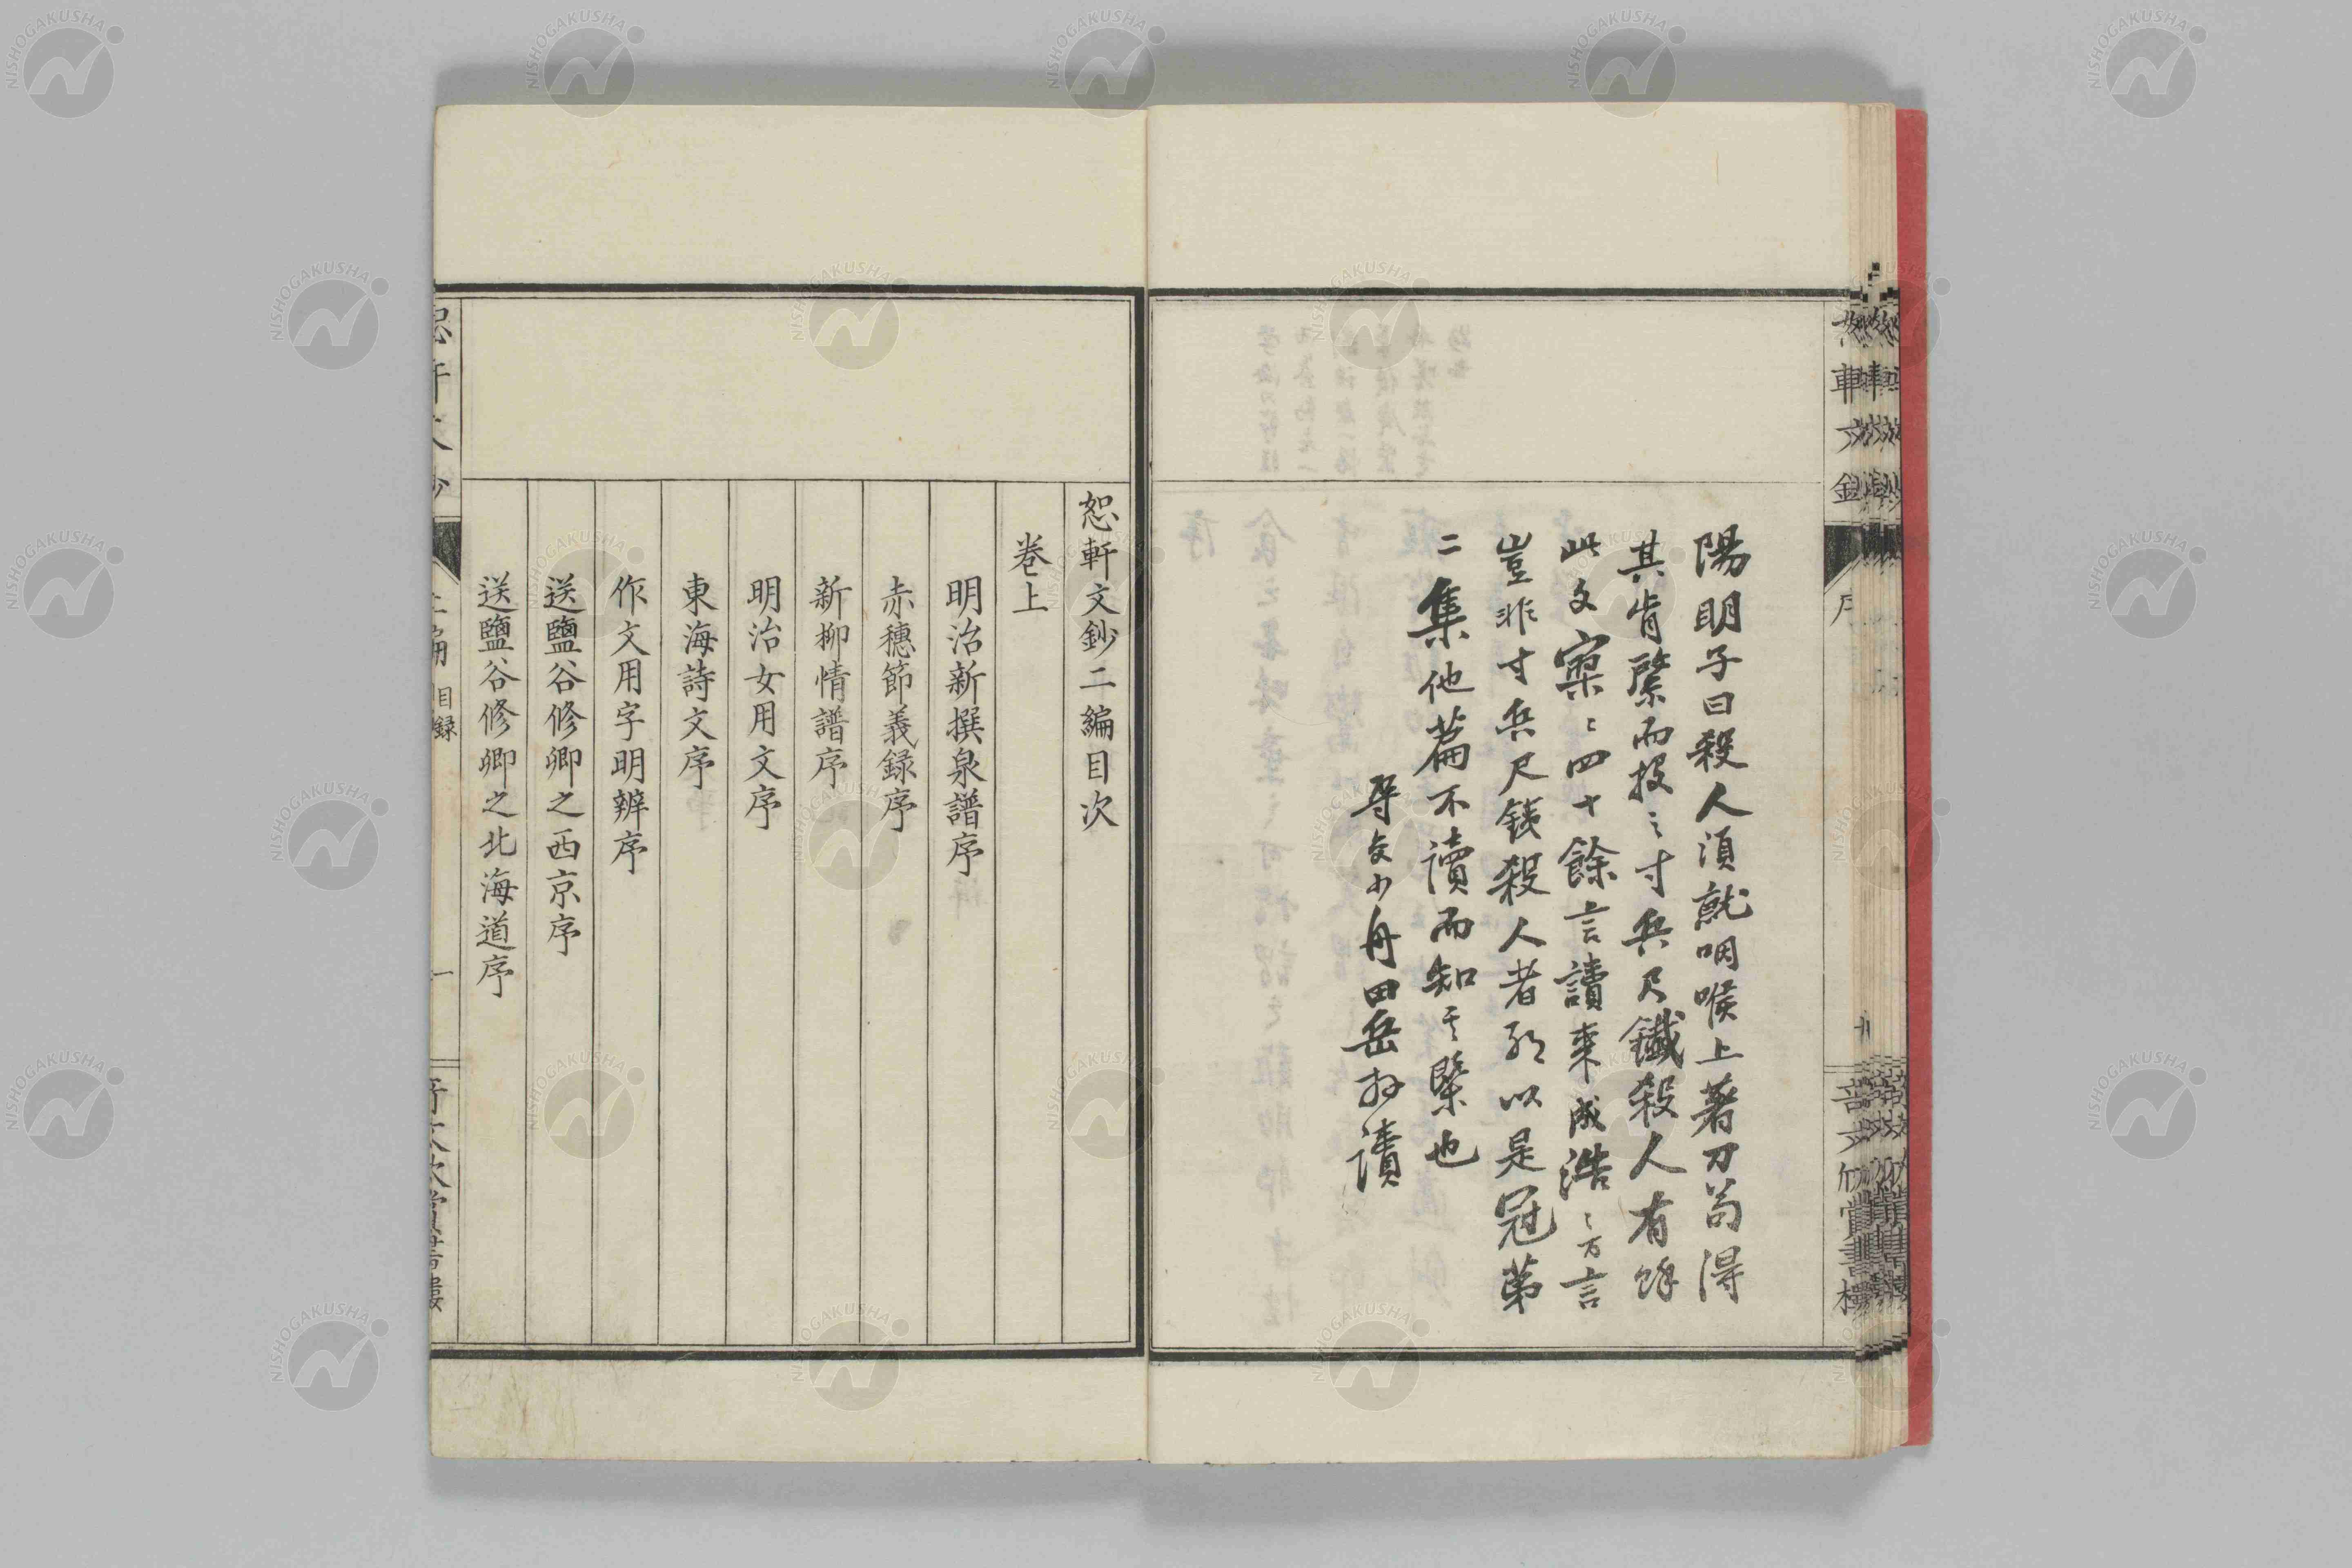 陽明子曰殺人須就咽喉上著刀茍得
其肯綮而投之寸兵尺鐵殺人有餘
此文寥〻四十餘言讀來成浩〻万言
豈非寸兵尺鉄殺人者耶以是冠苐
二集他篇不讀而知其槩也
辱交小舟田岳拜讀
恕軒文鈔二編目次
卷上
明治新撰泉譜序
赤穗節義録序
新柳情譜序
明治女用文序
東海詩文序
作文用字明辨序
送鹽谷修卿之西京序
送鹽谷修卿之北海道序
目録
一
NISHOGAKUSHA